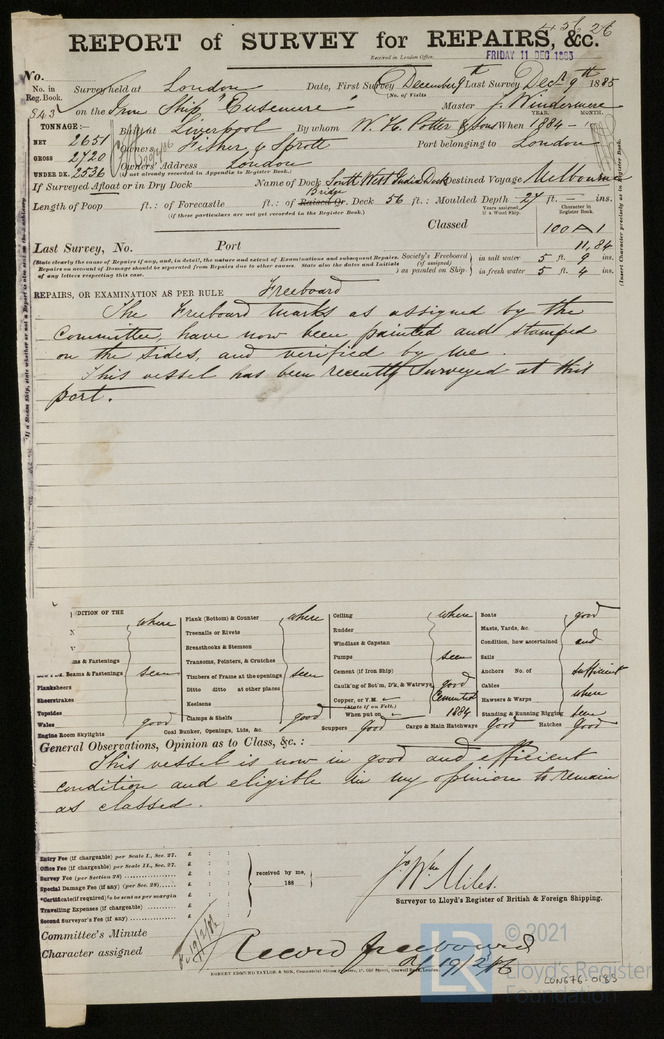 45626
REPORT of SURVEY for REPAIRS, &c.
Received in London Office.
FRIDAY 11 DEC 1885
No.
No. in Reg. Book.
543
Survey held at London Date, First Survey December 9th Last Survey Dec. 9th 1885
(No. of Visits
on the Iron Ship "Eusemere" Master J. Windermere
TONNAGE:—
YEAR. MONTH.
Built at Liverpool By whom W. H. Potter & Sons When 1884 —
NET 2651
GROSS 2720
UNDER DK. 2536
Owners Fisher & Sprott Port belonging to London
Owners' Address London
(if not already recorded in Appendix to Register Book.)
If Surveyed Afloat or in Dry Dock Name of Dock South West India Dock Destined Voyage Melbourne
Length of Poop ft.: of Forecastle ft.: of Raised Qr. Bridge Deck 56 ft.: Moulded Depth 27 ft. — ins.
(if these particulars are not yet recorded in the Register Book.)
Years assigned if a Wood Ship.
Character in Register Book.
Classed 100 A 1
11,84
Last Survey, No. Port
(State clearly the cause of Repairs if any, and, in detail, the nature and extent of Examinations and subsequent Repairs.
Repairs on account of Damage should be separated from Repairs due to other causes. State also the dates and Initials
of any letters respecting this case.
Society's Freeboard (if assigned) as painted on Ship
in salt water 5 ft. 9 ins.
in fresh water 5 ft. 4 ins.
(Insert Character precisely as in Register Book.
REPAIRS, OR EXAMINATION AS PER RULE Freeboard
The Freeboard marks as assigned by the
Committee, have now been painted and stamped
on the sides, and verified by me.
This vessel has been recently surveyed at this
port.
DITION OF THE
ms & Fastenings
Beams & Fastenings
Planksheers
Sheerstrakes
Topsides
Wales
Engine Room Skylights
where
seen
good
Plank (Bottom) & Counter
Treenails or Rivets
Breasthooks & Stemson
Transoms, Pointers, & Crutches
Timbers of Frame at the openings
Ditto ditto at other places
Keelsons
Clamps & Shelfs
Coal Bunker, Openings, Lids, &c.
where
seen
good
Ceiling
Rudder
Windlass & Capstan
Pumps
Cement (if Iron Ship)
Caulk'ng of Bot'm, D'k, & Watrwys
Copper, or Y.M.
(State if on Felt.)
When put on
Scuppers good
where
seen
good
Cemented
1884
Cargo & Main Hatchways good
Boats
Masts, Yards, &c.
Condition, how ascertained
Sails
Anchors No. of
Cables
Hawsers & Warps
Standing & Running Rigging
Hatches good
good
and
sufficient
where
seen
General Observations, Opinion as to Class, &c.:
This vessel is now in good and efficient
condition and eligible in my opinion to remain
as classed.
Entry Fee (if chargeable) per Scale I., Sec. 27. £ : :
Office Fee (if chargeable) per Scale II., Sec. 27. £ : :
Survey Fee (per Section 28) £ : :
Special Damage Fee (if any) (per Sec. 28) £ : :
*Certificate(if required) to be sent as per margin
Travelling Expenses (if chargeable) £ : :
Second Surveyor's Fee (if any) £ : :
received by me,
188
Jo Wm Miles.
Surveyor to Lloyd's Register of British & Foreign Shipping.
Committee's Minute
Character assigned
19/2/86
Record freeboard
19/2/86
ROBERT EDMUND TAYLOR & SON,
LR
© 2021
Lloyd's Register
Foundation
LON676-0183